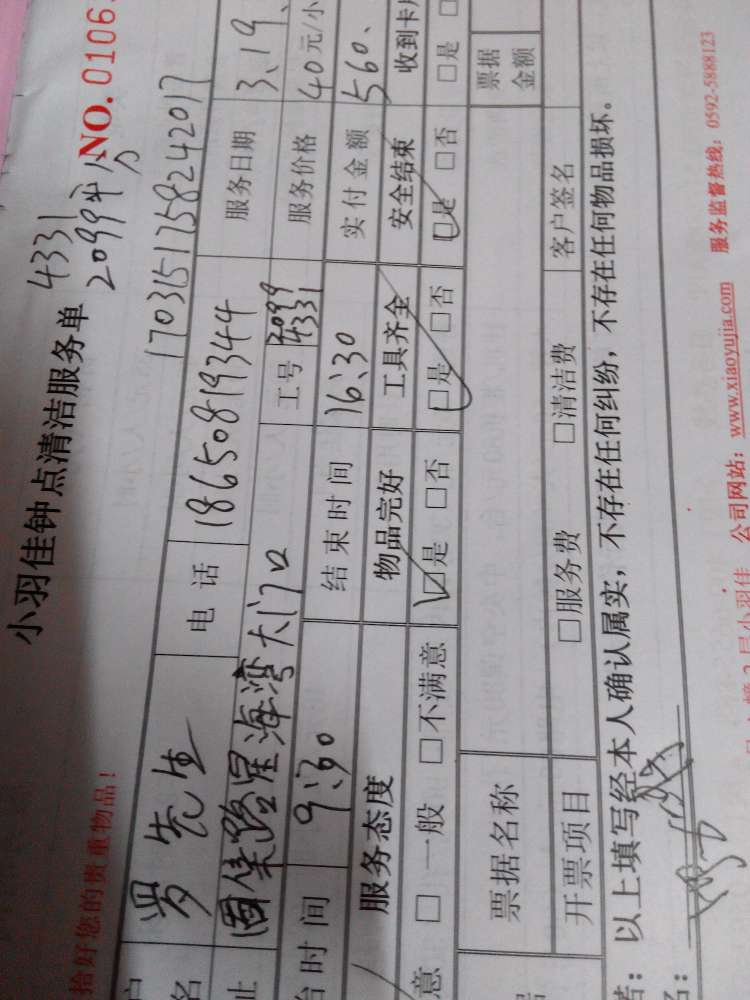 小羽佳钟点清洁服务单 4331
2099 NO.0106
拾好您的贵重物品！ 1703151758242017
户名 罗先生 电话 18650819344 服务日期 3.19.
址 星海湾大门口 工号 2099 4331 服务价格 40元/小
台时间 9:30 结束时间 16:30 实付金额 560.
服务态度 物品完好 工具齐全 安全结束 收到卡
意 □一般 □不满意 □是 □否 □是 □否 □是 □否 □是
票据名称 票据金额
开票项目 □服务费 □清洁费 客户签名
以上填写经本人确认属实，不存在任何纠纷，不存在任何物品损坏。
名：
公司网站：www.xiaoyujia.com 服务监督热线：0592-5888123